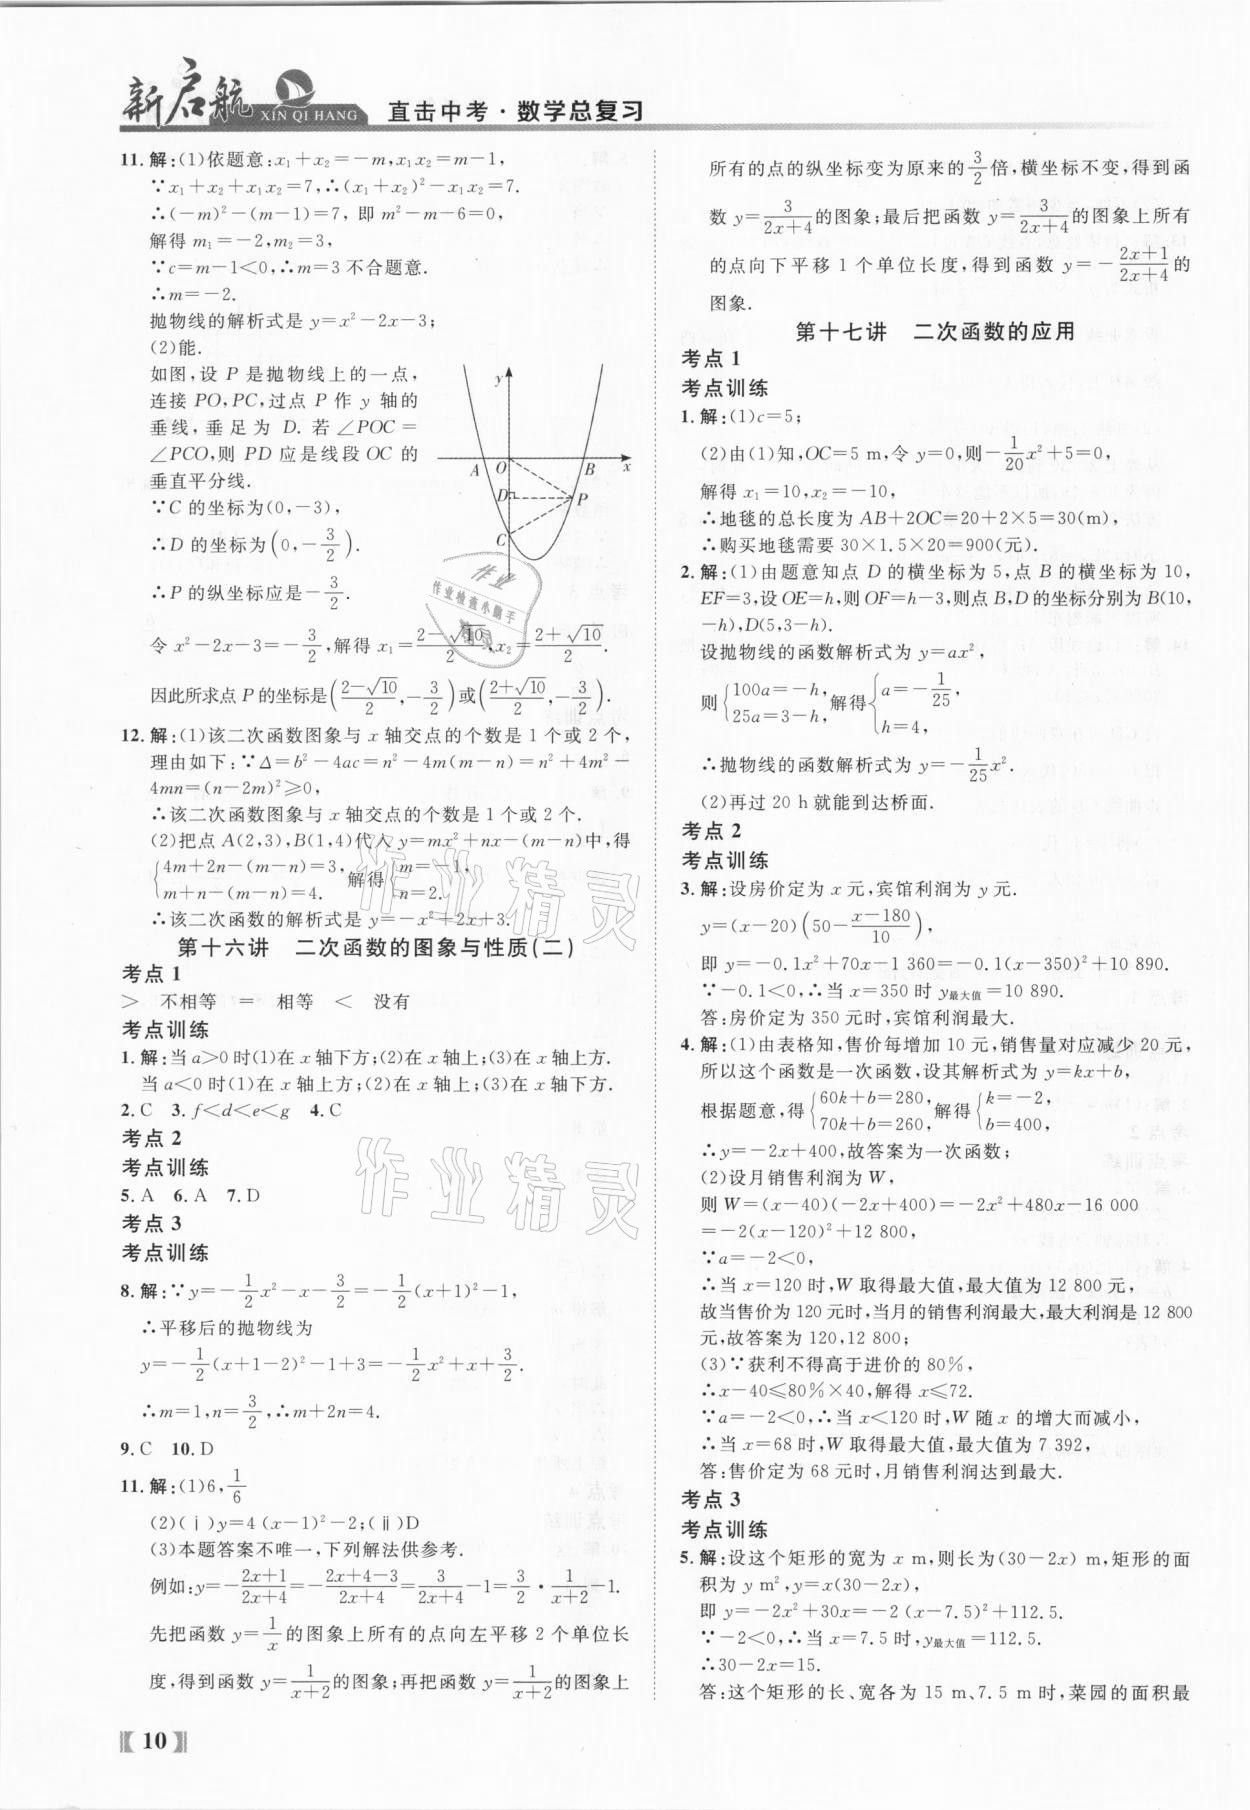 新启航
XIN QI HANG
直击中考·数学总复习
11.解:(1)依题意:x₁+x₂=-m,x₁x₂=m-1,
∵x₁+x₂+x₁x₂=7,∴(x₁+x₂)²-x₁x₂=7.
∴(-m)²-(m-1)=7,即 m²-m-6=0,
解得 m₁=-2,m₂=3,
∵c=m-1<0,∴m=3 不合题意.
∴m=-2.
抛物线的解析式是 y=x²-2x-3;
(2)能.
如图,设 P 是抛物线上的一点,
连接 PO,PC,过点 P 作 y 轴的
垂线,垂足为 D. 若∠POC=
∠PCO,则 PD 应是线段 OC 的
垂直平分线.
∵C 的坐标为(0,-3),
∴D 的坐标为(0,-3/2).
∴P 的纵坐标应是-3/2.
令 x²-2x-3=-3/2,解得 x₁=(2-√10)/2,x₂=(2+√10)/2.
因此所求点 P 的坐标是((2-√10)/2,-3/2)或((2+√10)/2,-3/2).
y
A O B x
D P
C
12.解:(1)该二次函数图象与 x 轴交点的个数是 1 个或 2 个,
理由如下:∵Δ=b²-4ac=n²-4m(m-n)=n²+4m²-
4mn=(n-2m)²≥0,
∴该二次函数图象与 x 轴交点的个数是 1 个或 2 个.
(2)把点 A(2,3),B(1,4)代入 y=mx²+nx-(m-n)中,得
{4m+2n-(m-n)=3, m+n-(m-n)=4. 解得{m=-1, n=2.
∴该二次函数的解析式是 y=-x²+2x+3.
第十六讲 二次函数的图象与性质(二)
考点 1
> 不相等 = 相等 < 没有
考点训练
1.解:当 a>0时(1)在 x 轴下方;(2)在 x 轴上;(3)在 x 轴上方.
当 a<0 时(1)在 x 轴上方;(2)在 x 轴上;(3)在 x 轴下方.
2.C 3.f<d<e<g 4.C
考点 2
考点训练
5.A 6.A 7.D
考点 3
考点训练
8.解:∵y=-1/2x²-x-3/2=-1/2(x+1)²-1,
∴平移后的抛物线为
y=-1/2(x+1-2)²-1+3=-1/2x²+x+3/2.
∴m=1,n=3/2,∴m+2n=4.
9.C 10.D
11.解:(1)6,1/6
(2)(ⅰ)y=4(x-1)²-2;(ⅱ)D
(3)本题答案不唯一,下列解法供参考.
例如:y=-(2x+1)/(2x+4)=-(2x+4-3)/(2x+4)=3/(2x+4)-1=3/2·1/(x+2)-1.
先把函数 y=1/x的图象上所有的点向左平移 2 个单位长
度,得到函数 y=1/(x+2)的图象;再把函数 y=1/(x+2)的图象上
【10】
所有的点的纵坐标变为原来的3/2倍,横坐标不变,得到函
数 y=3/(2x+4)的图象;最后把函数 y=3/(2x+4)的图象上所有
的点向下平移 1 个单位长度,得到函数 y=-(2x+1)/(2x+4)的
图象.
第十七讲 二次函数的应用
考点 1
考点训练
1.解:(1)c=5;
(2)由(1)知,OC=5 m,令 y=0,则-1/20x²+5=0,
解得 x₁=10,x₂=-10,
∴地毯的总长度为 AB+2OC=20+2×5=30(m),
∴购买地毯需要 30×1.5×20=900(元).
2.解:(1)由题意知点 D 的横坐标为 5,点 B 的横坐标为 10,
EF=3,设 OE=h,则 OF=h-3,则点 B,D 的坐标分别为 B(10,
-h),D(5,3-h).
设抛物线的函数解析式为 y=ax²,
则{100a=-h, 25a=3-h,解得{a=-1/25, h=4,
∴抛物线的函数解析式为 y=-1/25x².
(2)再过 20 h 就能到达桥面.
考点 2
考点训练
3.解:设房价定为 x 元,宾馆利润为 y 元.
y=(x-20)(50-(x-180)/10),
即 y=-0.1x²+70x-1 360=-0.1(x-350)²+10 890.
∵-0.1<0,∴当 x=350 时 y最大值=10 890.
答:房价定为 350 元时,宾馆利润最大.
4.解:(1)由表格知,售价每增加 10 元,销售量对应减少 20 元,
所以这个函数是一次函数,设其解析式为 y=kx+b,
根据题意,得{60k+b=280, 70k+b=260,解得{k=-2, b=400,
∴y=-2x+400,故答案为一次函数;
(2)设月销售利润为 W,
则 W=(x-40)(-2x+400)=-2x²+480x-16 000
=-2(x-120)²+12 800,
∵a=-2<0,
∴当 x=120 时,W 取得最大值,最大值为 12 800元,
故当售价为 120 元时,当月的销售利润最大,最大利润是 12 800
元,故答案为 120,12 800;
(3)∵获利不得高于进价的 80%,
∴x-40≤80%×40,解得 x≤72.
∵a=-2<0,∴当 x<120 时,W 随 x 的增大而减小,
∴当 x=68 时,W 取得最大值,最大值为 7 392,
答:售价定为 68 元时,月销售利润达到最大.
考点 3
考点训练
5.解:设这个矩形的宽为 x m,则长为(30-2x) m,矩形的面
积为 y m²,y=x(30-2x),
即 y=-2x²+30x=-2(x-7.5)²+112.5.
∵-2<0,∴当 x=7.5 时,y最大值=112.5.
∴30-2x=15.
答:这个矩形的长、宽各为 15 m、7.5 m 时,菜园的面积最
作业精灵
作业精灵
作业
作业检查小助手